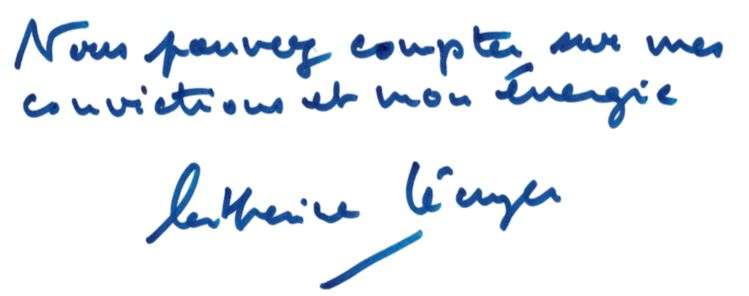 Vous pouvez compter sur mes
convictions et mon énergie
Catherine Lécuyer